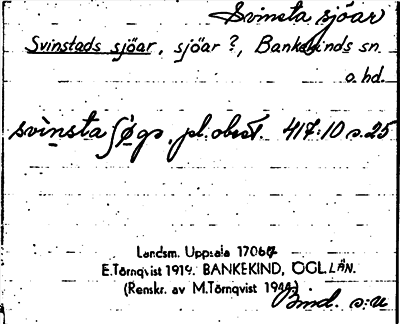 Svinsta sjöar
Svinstads sjöar, sjöar?, Bankekinds sn.
o. hd.
svìnsta ʃø̀gs, pl. obest. 417:10 s. 25
Landsm. Uppsala 17066
E.Törnqvist 1919. BANKEKIND, ÖGL.LÄN.
(Renskr. av M.Törnqvist 1944.)
Bmd. s:u